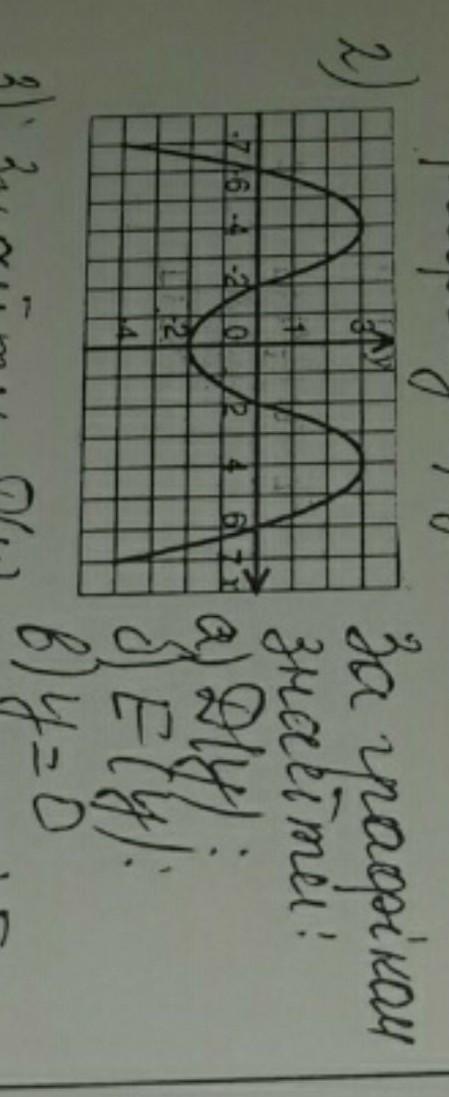 2)
3 y
1
-7 -6 -4 -2 0 2 4 6 7 x
-2
-4
За графіком
знайти:
а) D(y);
б) E(y);
в) y = 0
3).